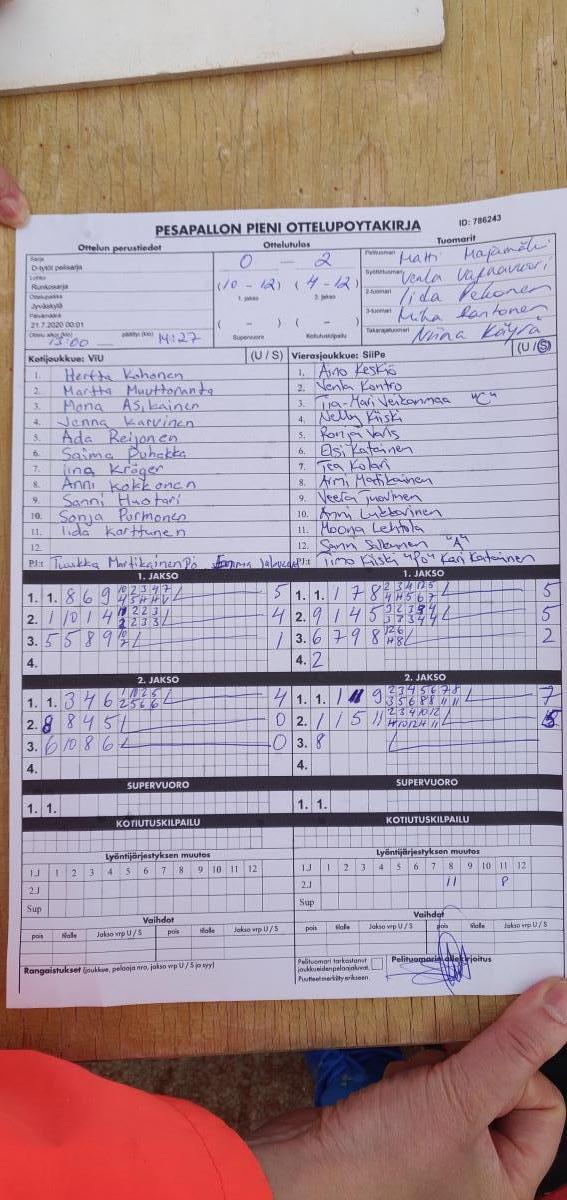 PESÄPALLON PIENI OTTELUPÖYTÄKIRJA
ID: 786243
Ottelun perustiedot
Ottelutulos
Tuomarit
Sarja
D-tytöt pelisarja
Lohko
Runkosarja
Ottelupaikka
Jyväskylä
Päivämäärä
21.7.2020 00:01
Ottelu alkoi (klo) 13:00 päättyi (klo) 14:27
0 - 2
(10 - 12) (4 - 12)
1. jakso 2. jakso
( - ) ( - )
Supervuoro Kotiutuskilpailu
Pelituomari Matti Majamäki
Syöttötuomari Venla Vajnavuori
2-tuomari Iida Pekonen
3-tuomari Mika Rantonen
Takarajatuomari Niina Käyrä
Kotijoukkue: ViU (U / S)
Vierasjoukkue: SiiPe (U / S)
1. Hertta Kohonen
2. Martta Muuttoranta
3. Mona Asikainen
4. Jenna Karvinen
5. Ada Reijonen
6. Saima Puhakka
7. Iina Kröger
8. Anni Kokkonen
9. Sanni Huotari
10. Sonja Purmonen
11. Iida Karttunen
12.
PJ:t Tuukka Martikainen
1. Aino Keskiö
2. Venla Kontro
3. Iia-Mari Veikanmaa "C"
4. Nelly Kiiski
5. Ronja Varis
6. Elsi Katainen
7. Tea Kolari
8. Anni Matikainen
9. Veera Tuovinen
10. Anni Lukkarinen
11. Moona Lehtola
12. Sanni Salkunen "A"
PJ:t Timo Kiiski "PO" Kari Katainen
1. JAKSO
1. JAKSO
1. 1. 8 6 9 5
2. 1 10 1 4 4
3. 5 5 8 9 1
4.
1. 1. 1 7 8 5
2. 9 1 4 5 5
3. 6 7 9 8 2
4. 2
2. JAKSO
2. JAKSO
1. 1. 3 4 6 4
2. 8 8 4 5 0
3. 6 10 8 6 0
4.
1. 1. 1 11 9 7
2. 1 1 5 11 5
3. 8
4.
SUPERVUORO
SUPERVUORO
1. 1.
1. 1.
KOTIUTUSKILPAILU
KOTIUTUSKILPAILU
Lyöntijärjestyksen muutos
Lyöntijärjestyksen muutos
1.J 1 2 3 4 5 6 7 8 9 10 11 12
2.J
Sup
1.J 1 2 3 4 5 6 7 8 9 10 11 12
2.J 11 8
Sup
Vaihdot
Vaihdot
pois tilalle Jakso vrp U / S pois tilalle Jakso vrp U / S
pois tilalle Jakso vrp U / S pois tilalle Jakso vrp U / S
Rangaistukset (joukkue, pelaaja nro, jakso vrp U / S ja syy)
Pelituomari tarkastanut
joukkueiden pelaajaluvat.
Puutteet merkitty erikseen.
Pelituomarin allekirjoitus